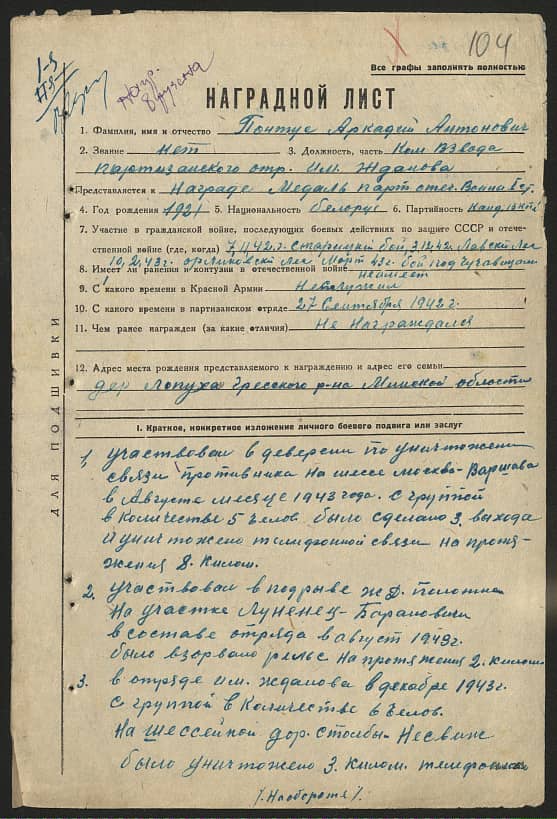 104
Все графы заполнять полностью
НАГРАДНОЙ ЛИСТ
1. Фамилия, имя и отчество Понтус Аркадий Антонович
2. Звание нет 3. Должность, часть Ком Взвода
партизанского отр. им. Жданова
Представляется к Награде Медаль парт отеч.
4. Год рождения 1921 5. Национальность белорус 6. Партийность Канд
7. Участие в гражданской войне, последующих боевых действиях по защите СССР и отече-
ственной войне (где, когда) 7.II.42.г. Старицкий бой, 3.12.42.
10.2.43г. Март 43г. бой под
8. Имеет ли ранения и контузии в отечественной войне неимеет
9. С какого времени в Красной Армии Неслужил
10. С какого времени в партизанском отряде 27 Сентября 1942г.
11. Чем ранее награжден (за какие отличия) Не Награждался
12. Адрес места рождения представляемого к награждению и адрес его семьи
дер Лопуха Гресского р-на Минской области
ДЛЯ ПОДШИВКИ
I. Краткое, конкретное изложение личного боевого подвига или заслуг
1, участвовал в деверсии по уничтожени
связи противника на шессе москва-Варшава
в Августе месяце 1943 года. с группой
в количестве 5 челов. было сделано 3. выхода
и уничтожено телифонной связи на протя-
жения 8. килом.
2. участвовал в подрыве ж.Д. полотна
на участке Луненец-Барановичи
в составе отряда в август 1943г.
было взорвано рельс на протяжения 2. килом
3. в отряде им. жданова в декабре 1943г.
с группой в количестве 8 челов.
на шессейной дор. столбы-Несвиж
было уничтожено 3. килом. телефон
/. Наоборотя /.